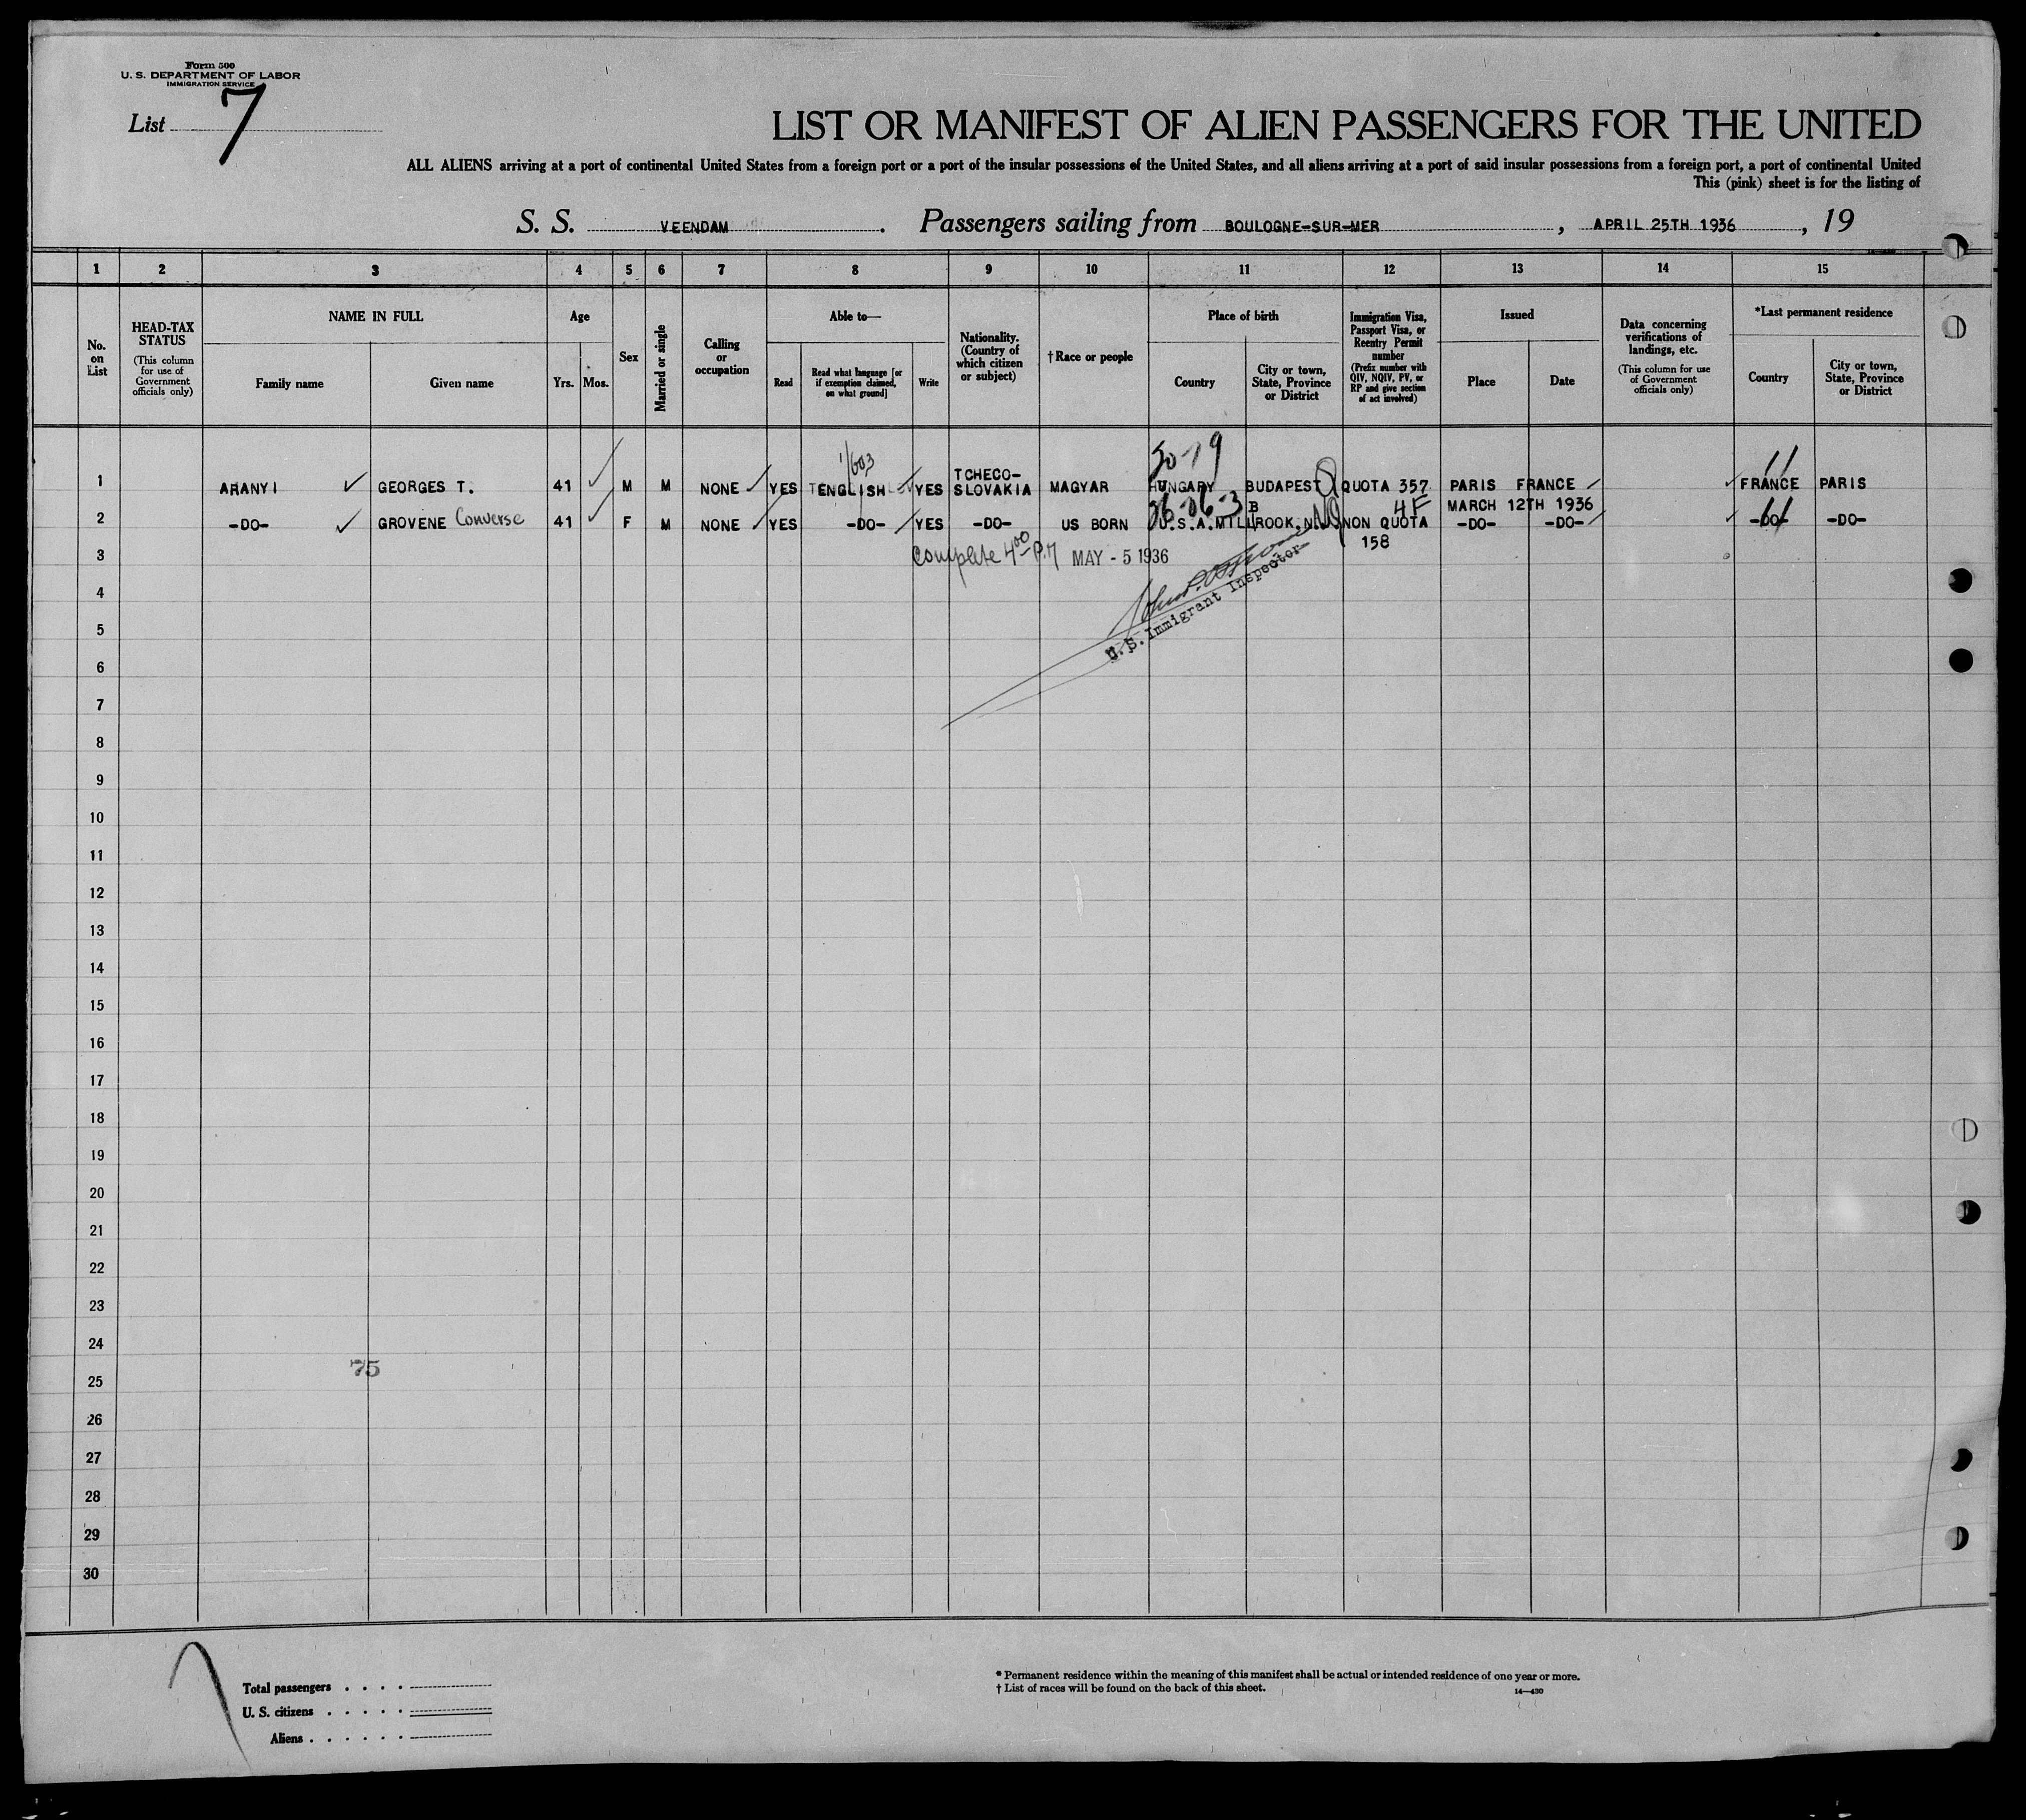 Form 500
U. S. DEPARTMENT OF LABOR
IMMIGRATION SERVICE
List 7
LIST OR MANIFEST OF ALIEN PASSENGERS FOR THE UNITED
ALL ALIENS arriving at a port of continental United States from a foreign port or a port of the insular possessions of the United States, and all aliens arriving at a port of said insular possessions from a foreign port, a port of continental United
This (pink) sheet is for the listing of
S. S. VEENDAM. Passengers sailing from BOULOGNE-SUR-MER, APRIL 25TH 1936, 19
1 2 3 4 5 6 7 8 9 10 11 12 13 14 15
No. on List
HEAD-TAX STATUS
(This column for use of Government officials only)
NAME IN FULL
Family name
Given name
Age
Yrs.
Mos.
Sex
Married or single
Calling or occupation
Able to—
Read
Read what language [or if exemption claimed, on what ground]
Write
Nationality. (Country of which citizen or subject)
†Race or people
Place of birth
Country
City or town, State, Province or District
Immigration Visa, Passport Visa, or Reentry Permit number
(Prefix number with QIV, NQIV, PV, or RP and give section of act involved)
Issued
Place
Date
Data concerning verifications of landings, etc.
(This column for use of Government officials only)
*Last permanent residence
Country
City or town, State, Province or District
1/603
30-19
11
1 ARANYI GEORGES T. 41 M M NONE YES ENGLISH YES TCHECO-SLOVAKIA MAGYAR HUNGARY BUDAPEST QUOTA 357 PARIS FRANCE FRANCE PARIS
26-06-3 4F MARCH 12TH 1936
2 -DO- GROVENE Converse 41 F M NONE YES -DO- YES -DO- US BORN U.S.A. MILLBROOK, N. NON QUOTA 158 -DO- -DO- -DO- -DO-
3 Complete 4 00 P.M MAY - 5 1936
U. S. Immigrant Inspector
4
5
6
7
8
9
10
11
12
13
14
15
16
17
18
19
20
21
22
23
24
75
25
26
27
28
29
30
Total passengers
U. S. citizens
Aliens
* Permanent residence within the meaning of this manifest shall be actual or intended residence of one year or more.
† List of races will be found on the back of this sheet.
14—430